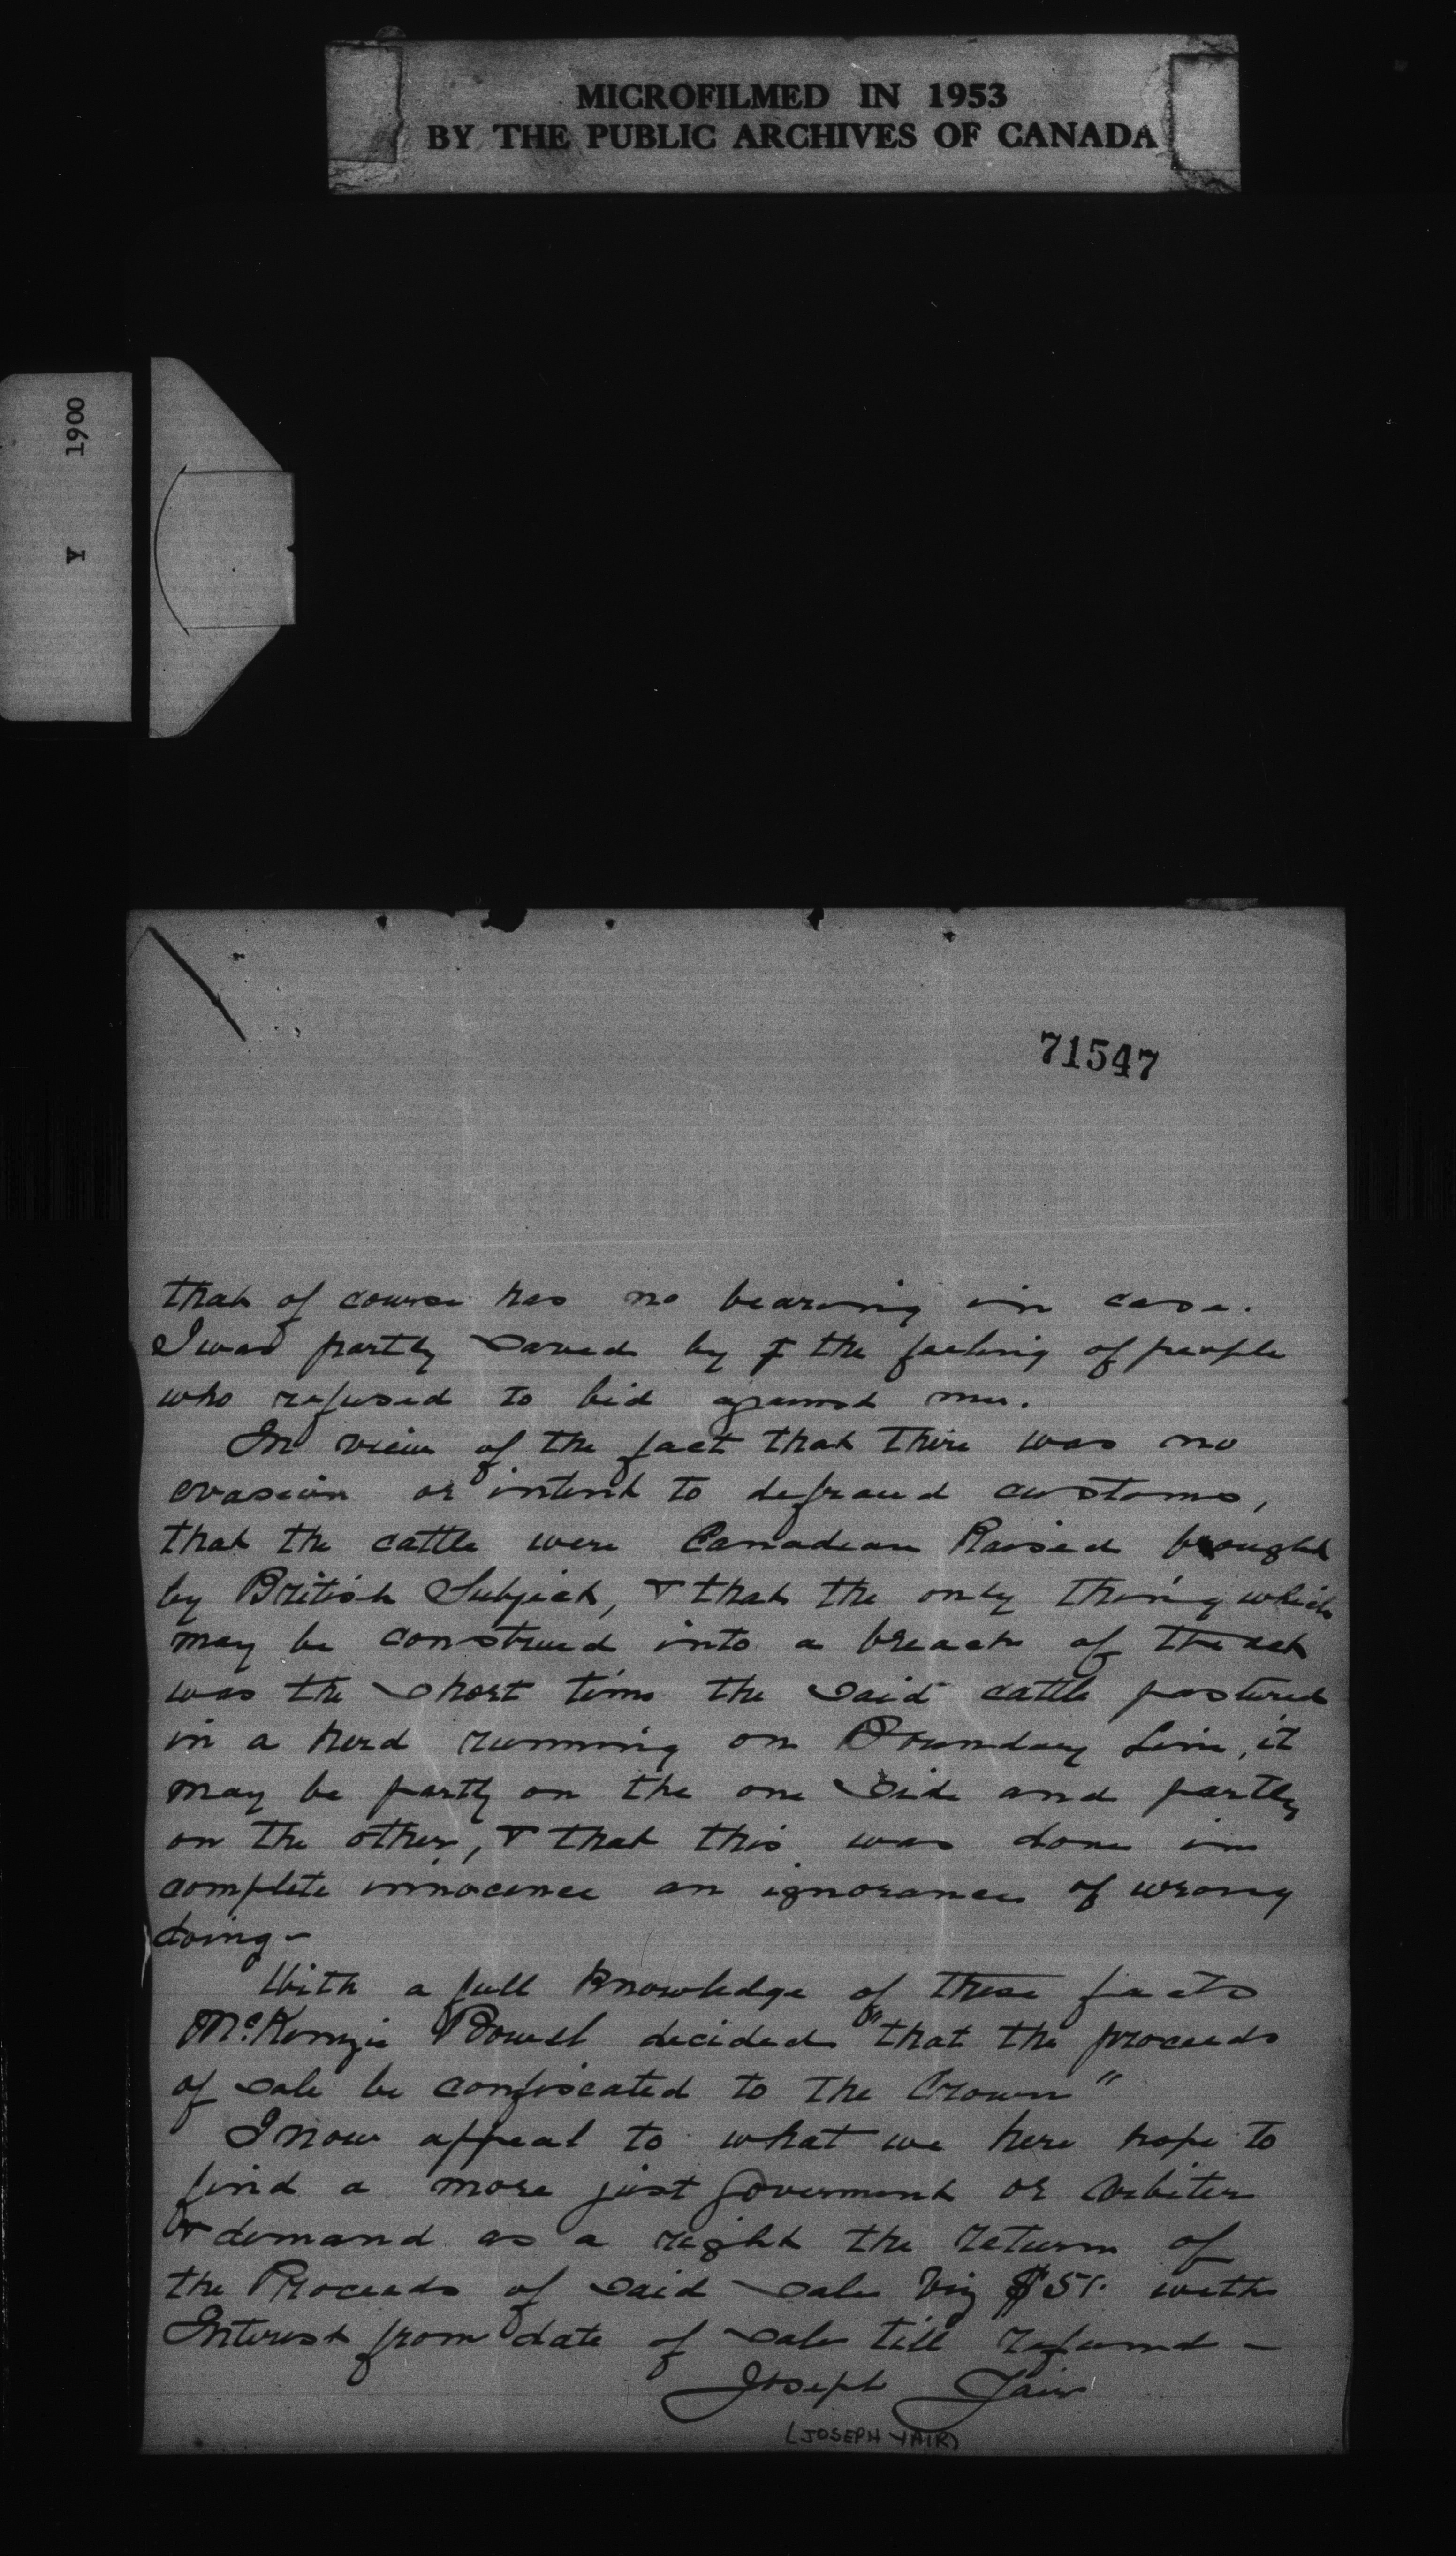 MICROFILMED IN 1953
BY THE PUBLIC ARCHIVES OF CANADA
Y 1900
71547
that of course has no bearing in case.
I was partly saved by the feeling of people
who refused to bid against me.
In view of the fact that there was no
evasion or intent to defraud customs,
that the cattle were Canadian Raised brought
by British Subject, & that the only thing which
may be construed into a breach of the act
was the short time the said cattle pastured
in a herd running on Boundary Line, it
may be partly on the one side and partly
on the other, & that this was done in
complete innocence an ignorance of wrong
doing -
With a full knowledge of these facts
McKenzie Bowell decided "that the proceeds
of sale be confiscated to the Crown"
I now appeal to what we here hope to
find a more just Goverment or Arbiter
& demand as a right the return of
the Proceeds of said sale viz $51. with
Interest from date of sale till refund -
Joseph Yair
(JOSEPH YAIR)